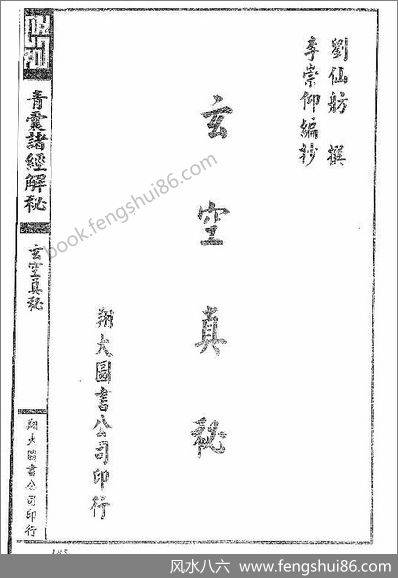 劉仙舫 撰
李崇仰編抄
玄空真秘
翔大圖書公司印行
青囊諸經解秘
玄空真秘
翔大圖書公司印行
book.fengshui86.com
风水八六 www.fengshui86.com